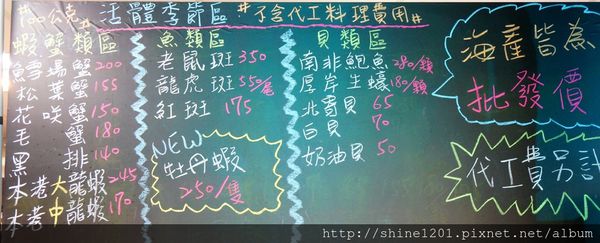 #100公克# 活體季節區 #不含代工料理費用#
蝦蟹類區
鱈場蟹 200
松葉蟹 155
花咲蟹 150
毛蟹 180
黑排 140
本港大龍蝦 245
本港中龍蝦 170
魚類區
老鼠斑 350
龍虎斑 550/尾
紅斑 175
NEW
牡丹蝦
250/隻
貝類區
南非鮑魚 280/顆
厚岸生蠔 180/顆
北寄貝 65
白貝 70
奶油貝 50
海產皆為
批發價
代工費另計
http://shine1201.pixnet.net/album